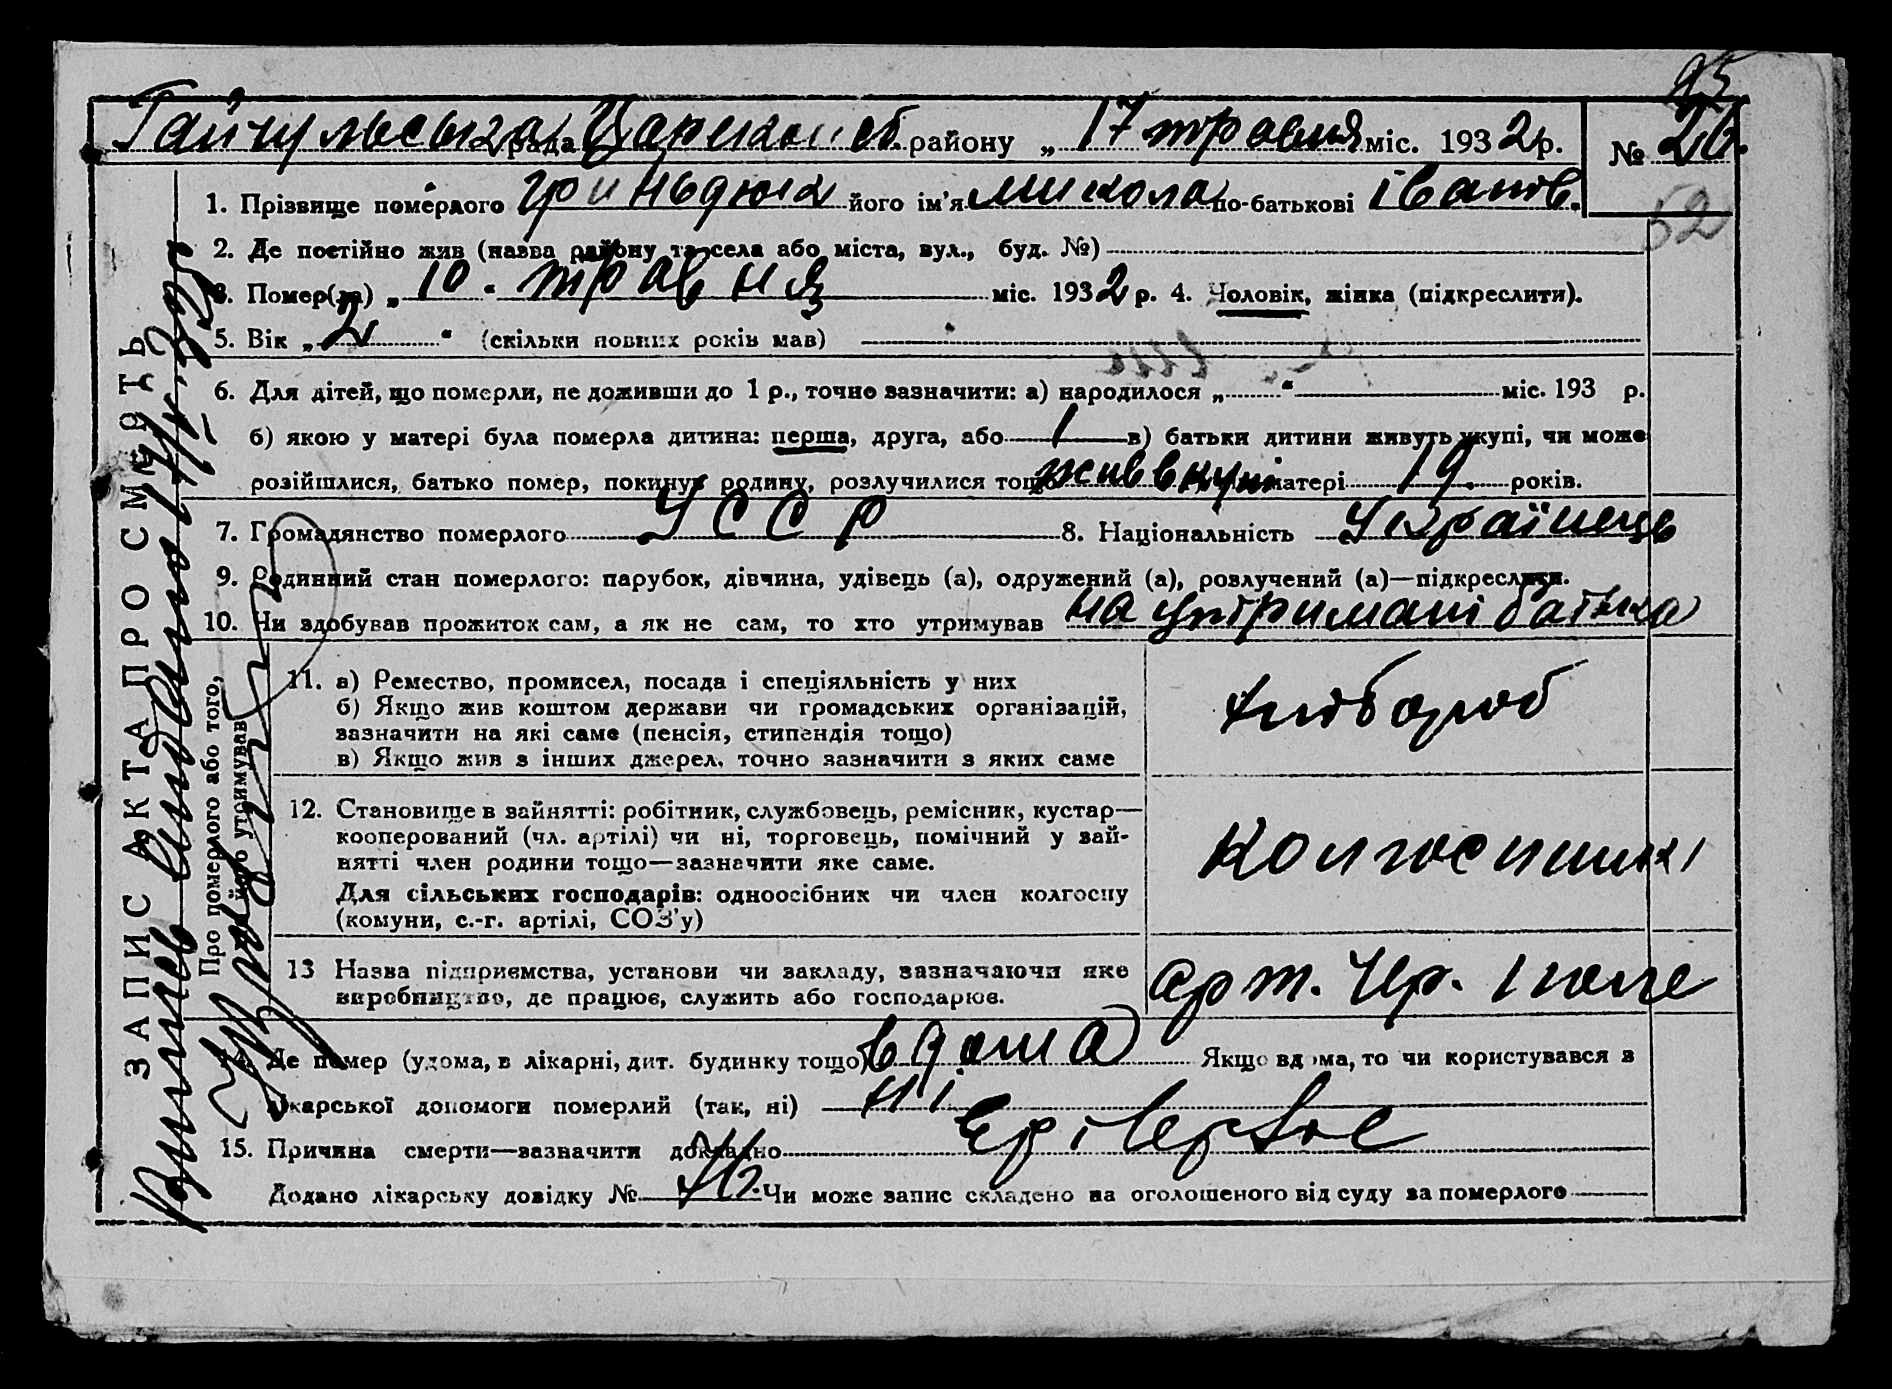 95
Гайчульська рада Царекон об. району „ 17 травня міс. 1932 р. № 26.
52
1. Прізвище померлого Гриньдюк його ім'я Микола по-батькові Іванов.
2. Де постійно жив (назва району та села або міста, вул., буд. №)
3. Помер(ла) „ 10 " травня міс. 1932 р. 4. Чоловік, жінка (підкреслити).
5. Вік „ 2 " (скільки повних років мав)
6. Для дітей, що померли, не доживши до 1 р., точно зазначити: а) народилося „ " міс. 193 р.
б) якою у матері була померла дитина: перша, друга, або 1 в) батьки дитини живуть укупі, чи може
розійшлися, батько помер, покинув родину, розлучилися тощо жив вкупі матері 19. років.
7. Громадянство померлого УССР 8. Національність Українець
9. Родинний стан померлого: парубок, дівчина, удівець (а), одружений (а), розлучений (а)—підкреслити.
10. Чи здобував прожиток сам, а як не сам, то хто утримував на утримані батька
ЗАПИС АКТА ПРО СМЕРТЬ
Про померлого або того,
хто його утримував
11. а) Ремество, промисел, посада і спеціяльність у них
б) Якщо жив коштом держави чи громадських організацій,
зазначити на які саме (пенсія, стипендія тощо)
в) Якщо жив з інших джерел, точно зазначити з яких саме
хлібороб
12. Становище в зайнятті: робітник, службовець, ремісник, кустар—
кооперований (чл. артілі) чи ні, торговець, помічний у зай-
нятті член родини тощо—зазначити яке саме.
Для сільських господарів: одноосібник чи член колгоспу
(комуни, с.-г. артілі, СОЗ'у)
Колгоспник
13 Назва підприємства, установи чи закладу, зазначаючи яке
виробництво, де працює, служить або господарює.
Арт. Чер. поле
14. Де помер (удома, в лікарні, дит. будинку тощо) вдома Якщо вдома, то чи користувався з
лікарської допомоги померлий (так, ні) ні
15. Причина смерти—зазначити докладно Epilepsiae
Додано лікарську довідку № Чи може запис складено на оголошеного від суду за померлого